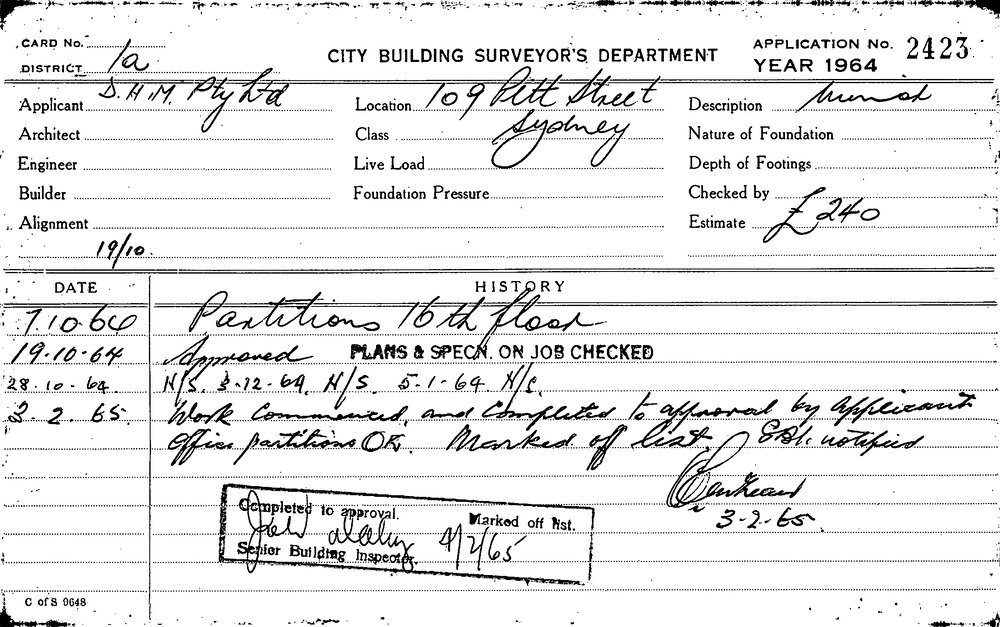 CARD No.
DISTRICT 1a
CITY BUILDING SURVEYOR'S DEPARTMENT
APPLICATION No. 2423
YEAR 1964
Applicant D.H.M. Pty Ltd
Location 109 Pitt Street
Sydney
Description
Architect
Class
Nature of Foundation
Engineer
Live Load
Depth of Footings
Builder
Foundation Pressure
Checked by
Alignment
Estimate £240
19/10.
DATE HISTORY
7.10.64 Partitions 16th floor
19.10.64 Approved PLANS & SPECN. ON JOB CHECKED
28.10.64. N/S. 3.12.64. N/S. 5.1.64. N/S.
3.2.65. Work commenced, and completed to approval by applicant
Office partitions OK. Marked off list notified
3-2-65.
Completed to approval. Marked off list.
4/2/65
Senior Building Inspector.
C of S 9648